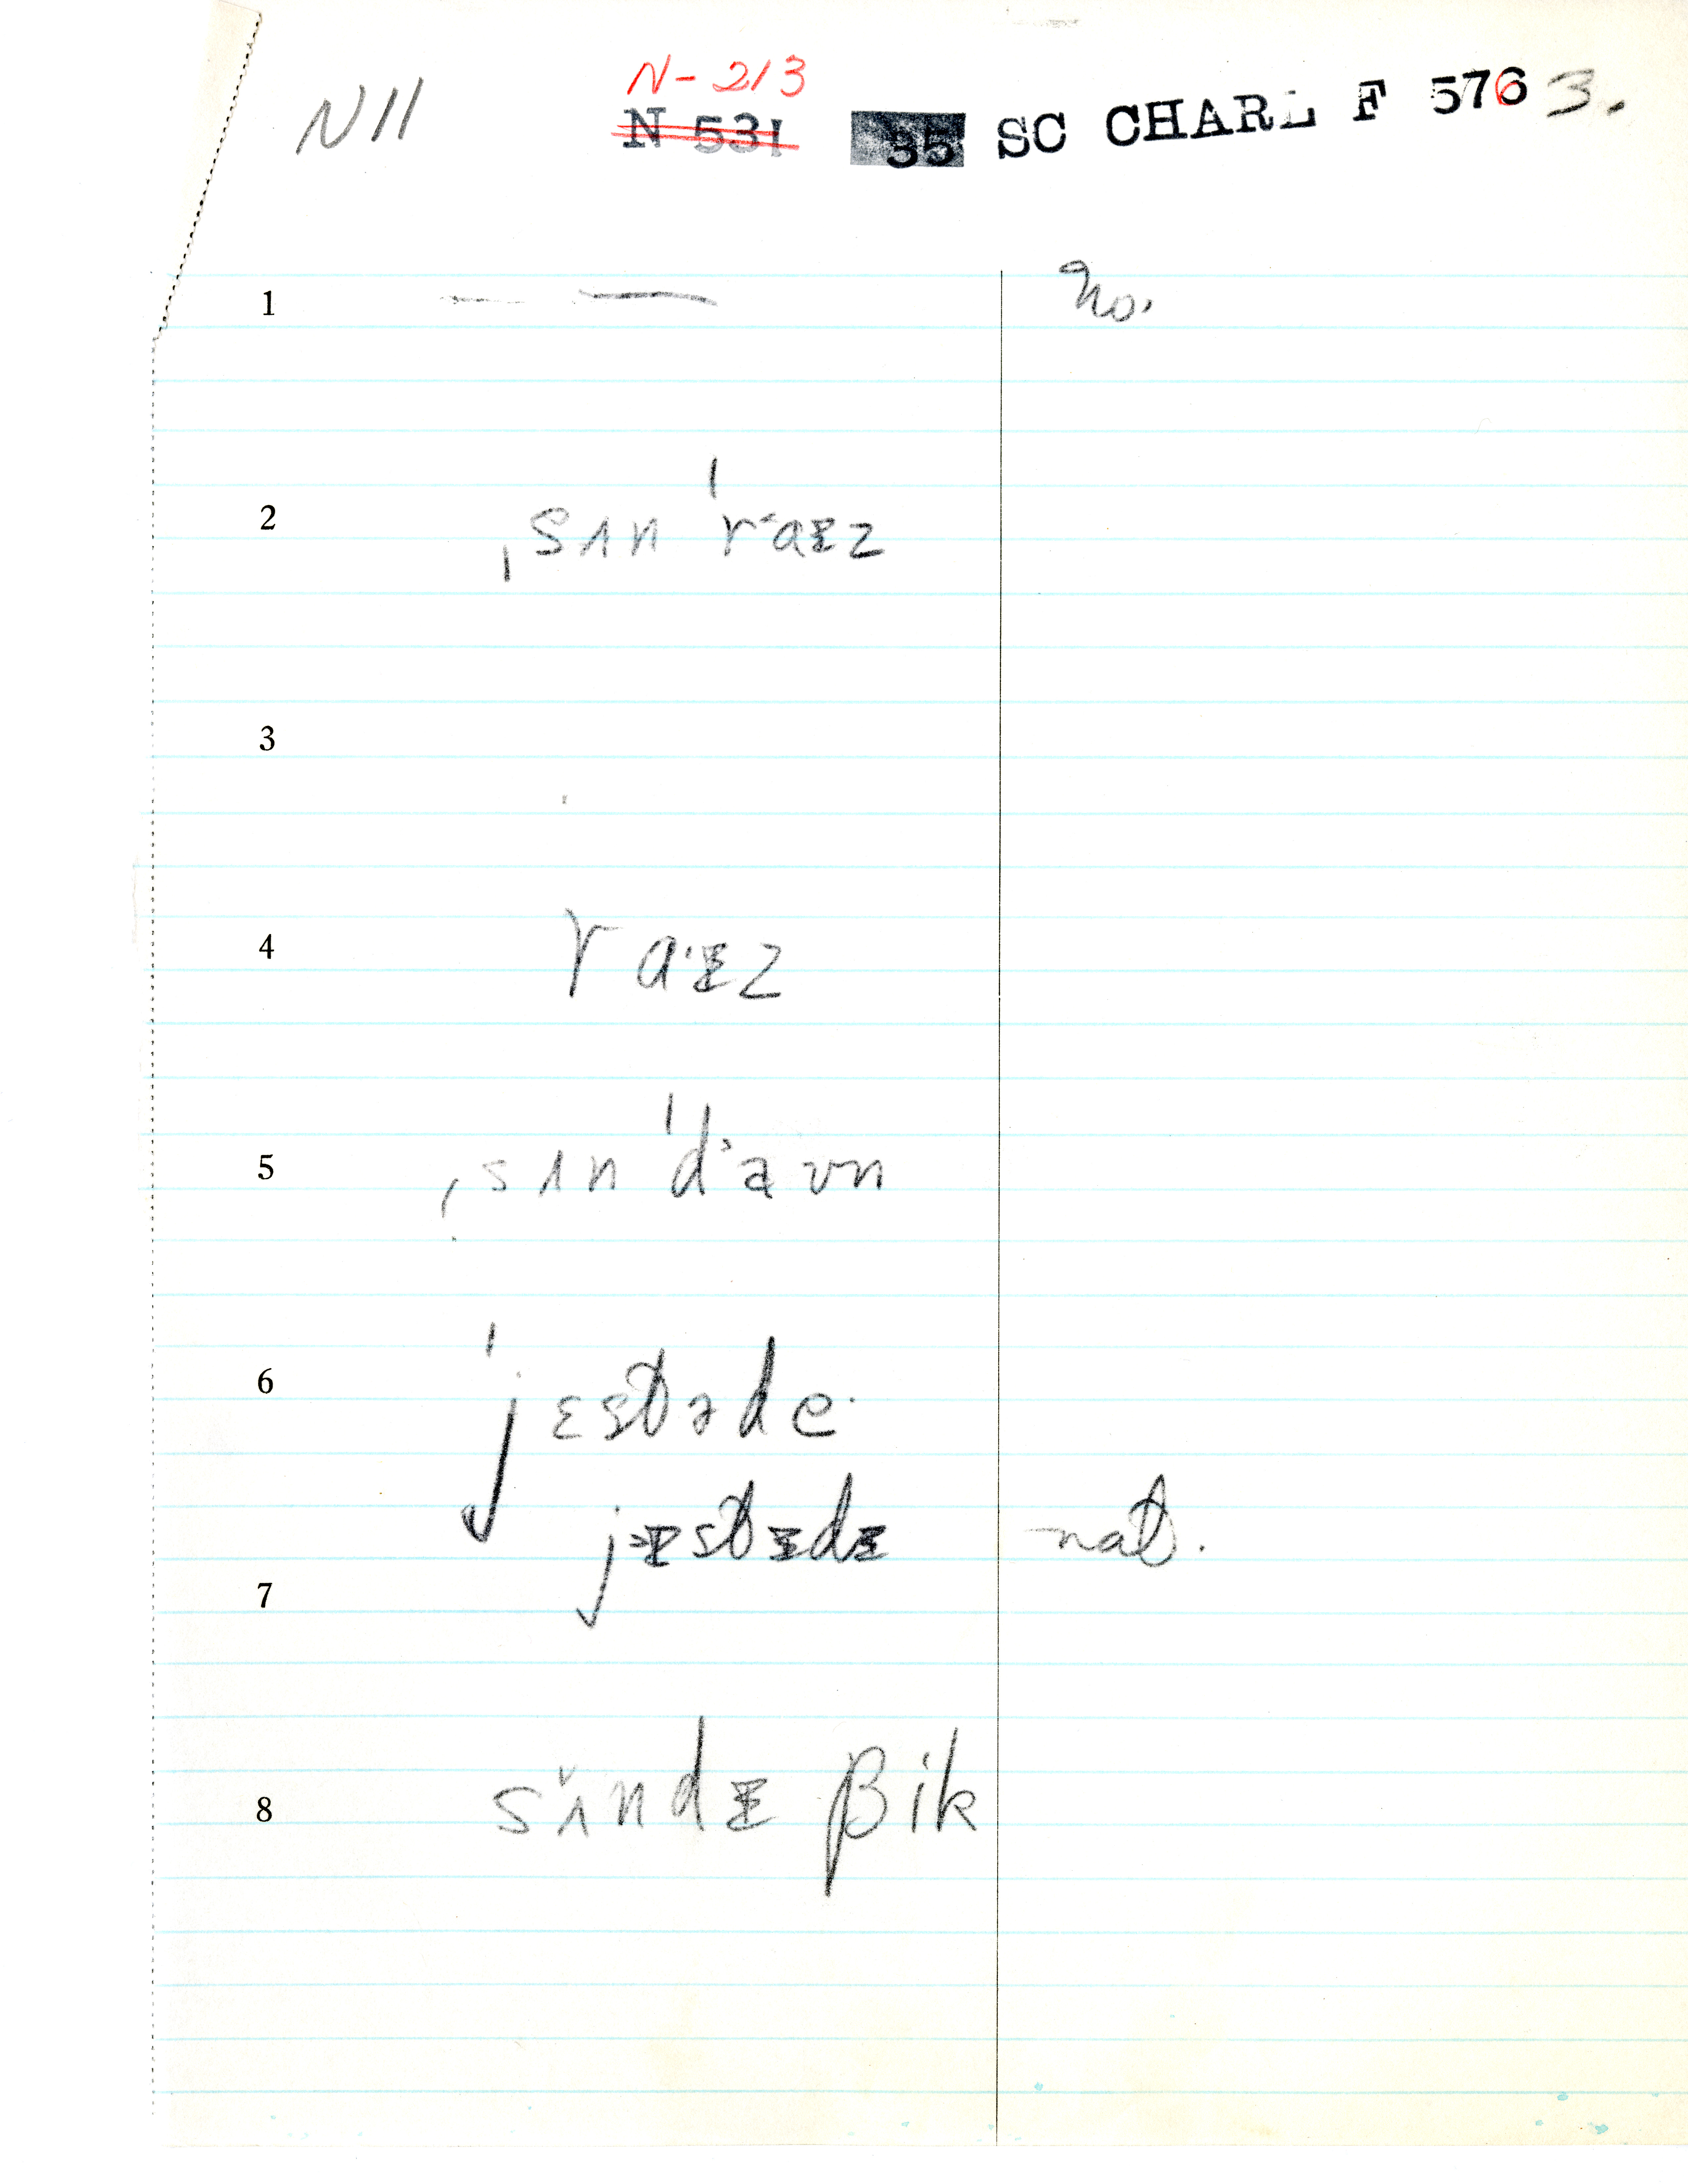 N-213
N11 N 531 35 SC CHARL F 576 3.
1 — — no.
2 ˌsʌn ˈrˑaɪz
3
4 raˑɪz
5 ˌsʌn ˈdˑaʊn
6 ˈjɛstədeˑ
jɪstɪdɪ nat.
7
8 sʌ̌ndɪ βik